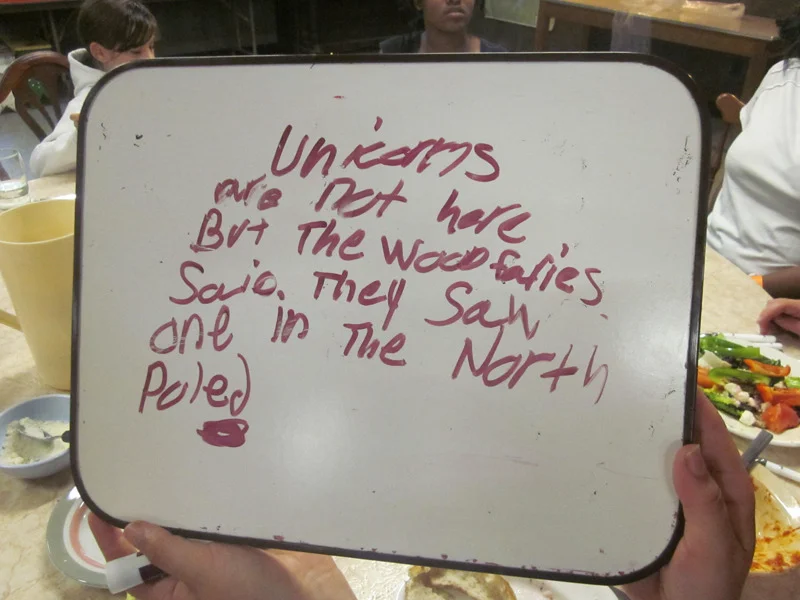 Unicorns
are not here
But The Wood faries
Said. They Saw
one in The North
Poled